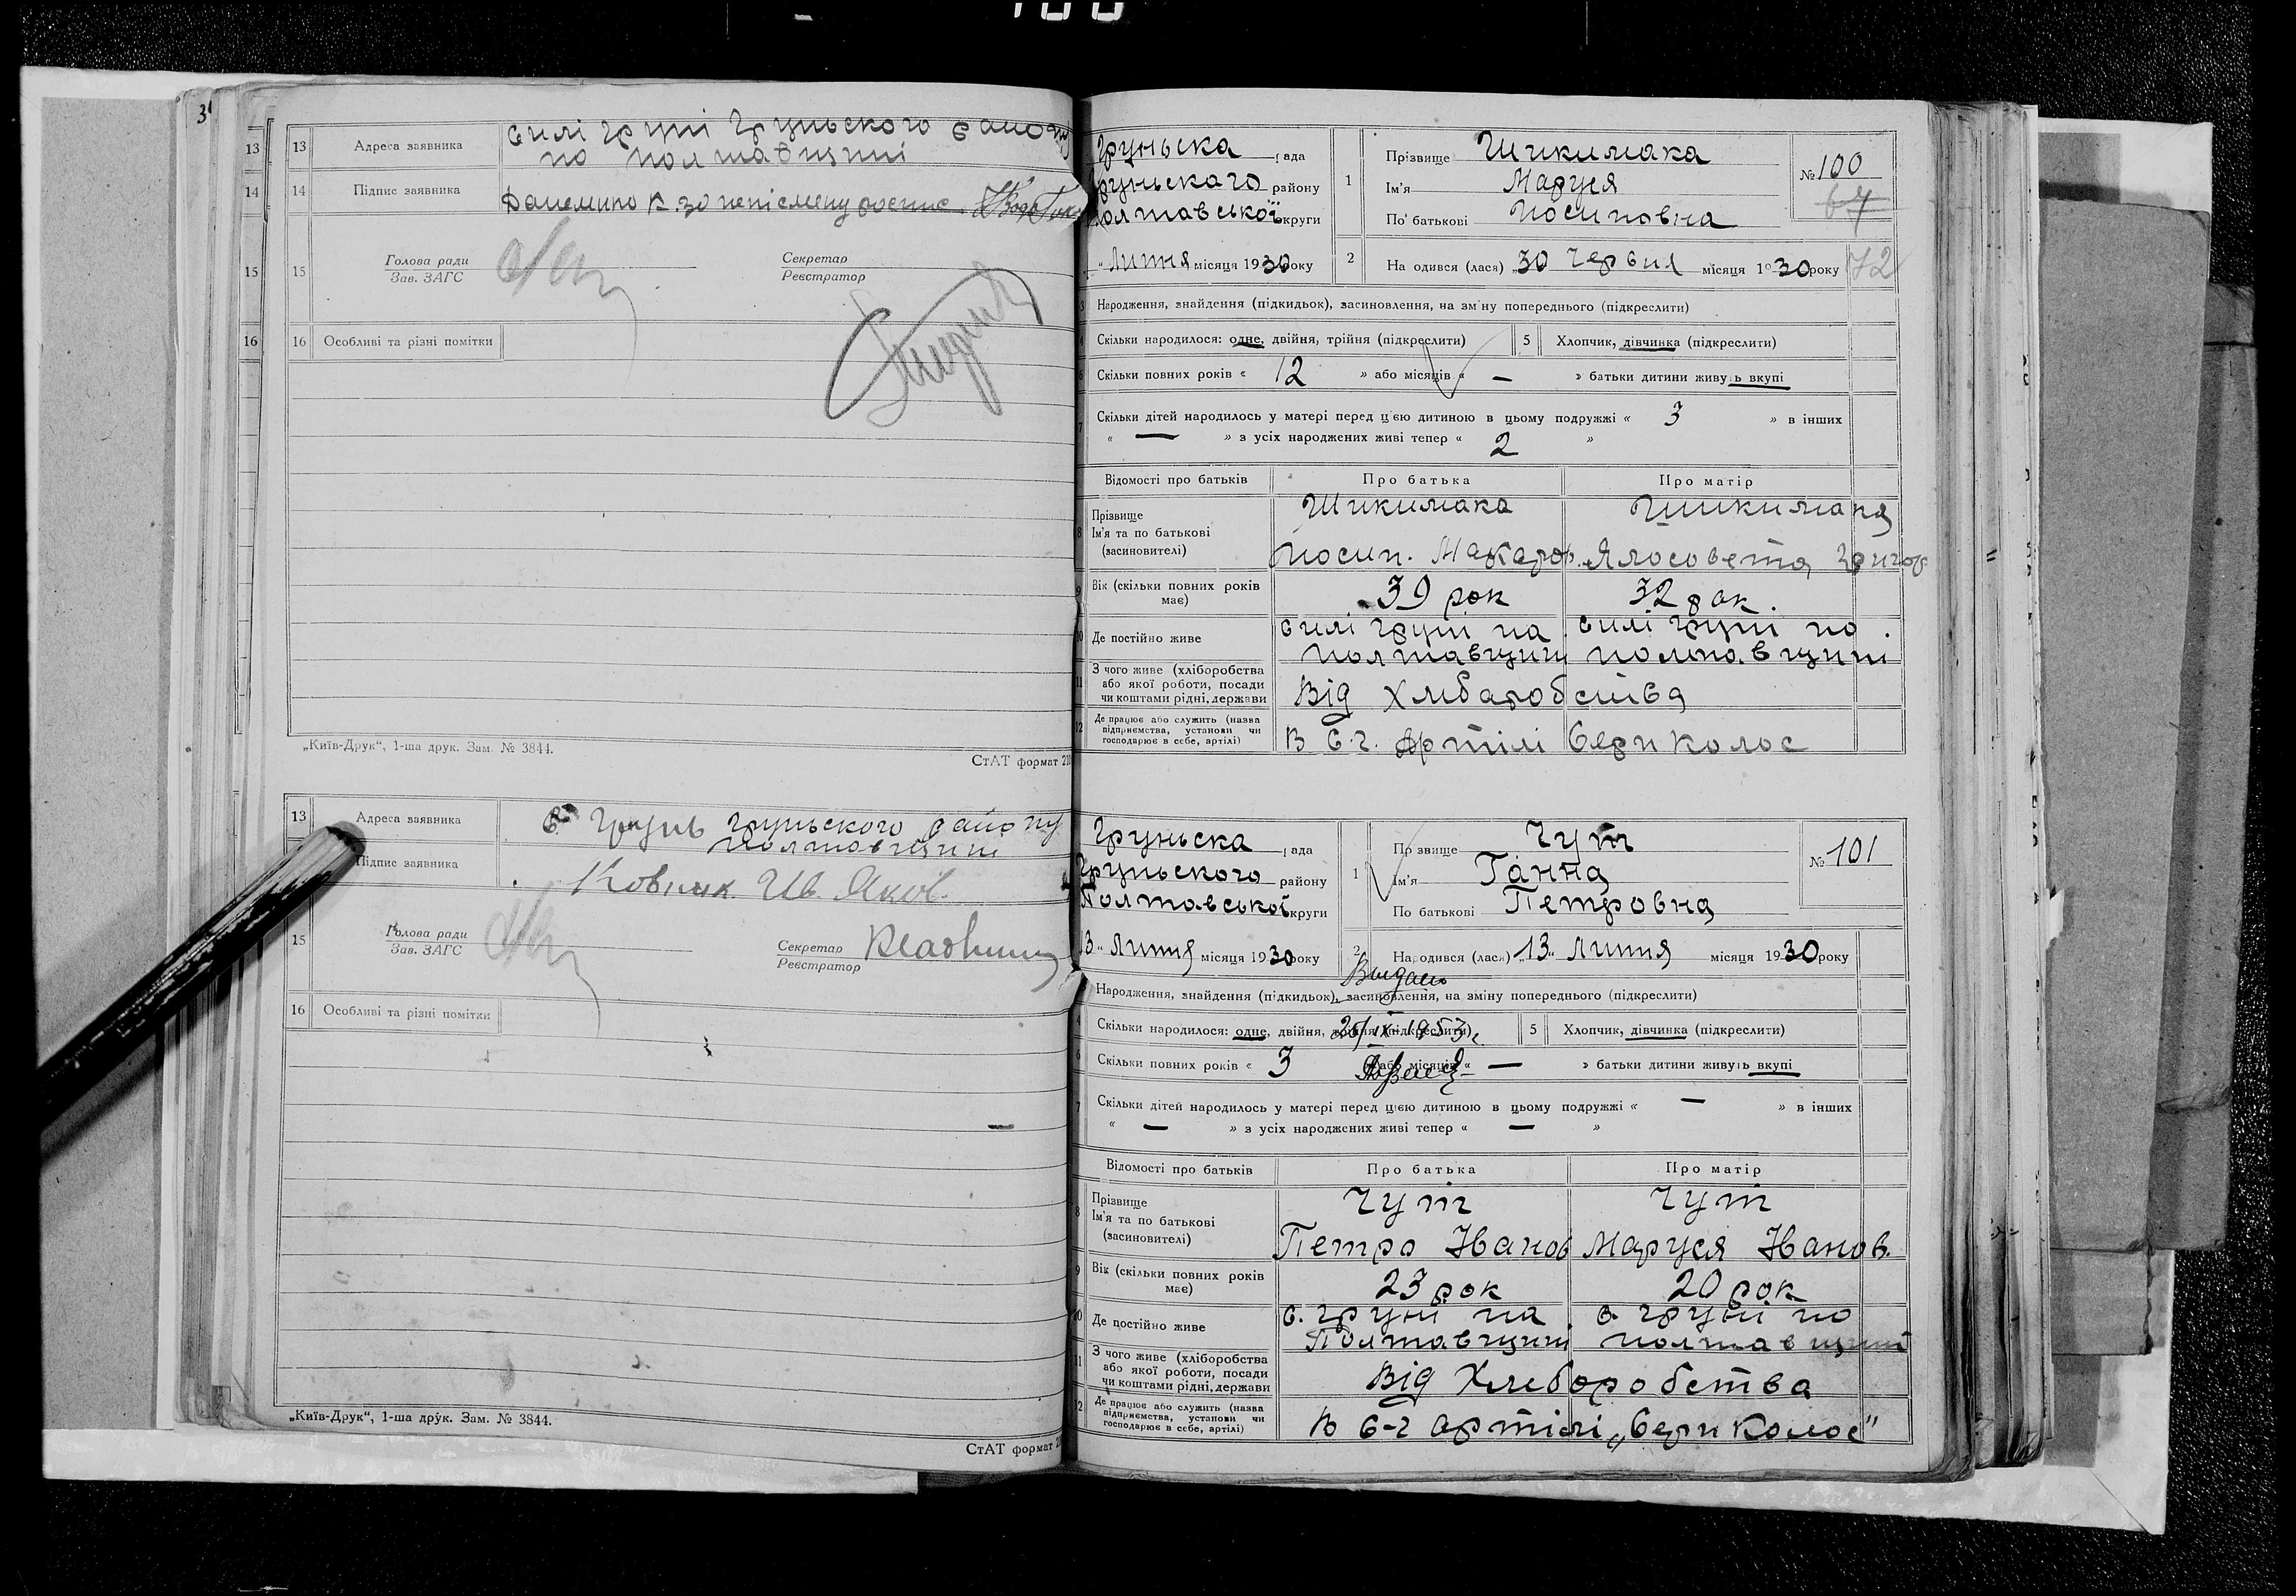 100
31
13
13 Адреса заявника силі Груні Груньского району
по полтавщині
14
14 Підпис заявника
15
15 Голова ради
Зав. ЗАГС
Секретар
Реєстратор
16
16 Особливі та різні помітки
„Київ-Друк“, 1-ша друк. Зам. № 3844.
СтАТ формат 210
13 Адреса заявника с. Грунь Груньского району
полтавщини
Підпис заявника Ив. Яков.
15 Голова ради
Зав. ЗАГС
Секретар
Реєстратор
16 Особливі та різні помітки
„Київ-Друк“, 1-ша друк. Зам. № 3844.
СтАТ формат
Груньска рада
Груньскаго району
Полтавської округи
Липня місяця 1930 року
1 Прізвище Шикимака
Ім'я Маруся
По батькові Иосиповна
№ 100
67
72
2 Народився (лася) „30 Червня місяця 1930 року
Народження, знайдення (підкидьок), засиновлення, на зміну попереднього (підкреслити)
Скільки народилося: одне, двійня, трійня (підкреслити) 5 Хлопчик, дівчинка (підкреслити)
Скільки повних років « 12 » або місяців « — » батьки дитини живуть вкупі
Скільки дітей народилось у матері перед цією дитиною в цьому подружжі « 3 » в інших
« — » з усіх народжених живі тепер « 2 »
Відомості про батьків Про батька Про матір
8 Прізвище
Ім'я та по батькові
(засиновителі)
Шикимака Шикимака
Иосип. Макаров. Ялосовета Григор
9 Вік (скільки повних років
має) 39 рок 32 рок.
10 Де постійно живе силі Груні на силі Груні по
полтавщини полтавщині
11 З чого живе (хліборобства
або якої роботи, посади
чи коштами рідні, держави Від Хлибаробства
12 Де працює або служить (назва
підприємства, установи чи
господарює в себе, артілі) В С.г. Артілі Сери Колос
Груньска рада
Груньского району
Полтавської округи
13 „ Липня місяця 1930 року
1 Прізвище Чуп
Ім'я Ганна
По батькові Петровна
№ 101
2 Народився (лася) „13“ Липня місяця 1930 року
Выдано
Народження, знайдення (підкидьок), засиновлення, на зміну попереднього (підкреслити)
Скільки народилося: одне, двійня, трійня (підкреслити) 5 Хлопчик, дівчинка (підкреслити)
25/IX-1953г.
Скільки повних років « 3 » або місяців « — » батьки дитини живуть вкупі
7 Скільки дітей народилось у матері перед цією дитиною в цьому подружжі « — » в інших
« — » з усіх народжених живі тепер « — »
Відомості про батьків Про батька Про матір
8 Прізвище
Ім'я та по батькові
(засиновителі)
Чуп Чуп
Петро Иванов Маруся Иванов.
9 Вік (скільки повних років
має) 23 рок 20 рок
10 Де постійно живе с. Груні на с. Груні по
Полтавщині полтавщині
11 З чого живе (хліборобства
або якої роботи, посади
чи коштами рідні, держави Від Хлеборобства
12 Де працює або служить (назва
підприємства, установи чи
господарює в себе, артілі) В С-г артілі „Сери Колос“